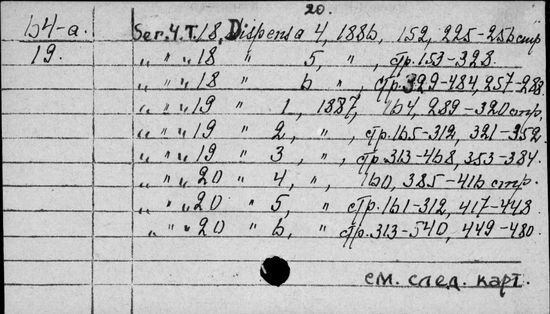 20.
64-a. Ser. 4. T. 18, Dispensa 4, 1886, 152, 225-256 стр
19. „ „ „ 18 „ 5, „, стр. 153-328.
„ „ „ 18 „ 6 „, стр. 329-484, 257-288
„ „ „ 19 „ 1, 1887, 164, 289-320 стр.
„ „ „ 19 „ 2, „, стр. 165-312, 321-352
„ „ „ 19 „ 3, „, стр. 313-468, 353-384.
„ „ „ 20 „ 4, „, 160, 385-416 стр.
„ „ „ 20 „ 5, „ стр. 161-312, 417-448
„ „ „ 20 „ 6, „, стр. 313-540, 449-480.
см. след. карт.